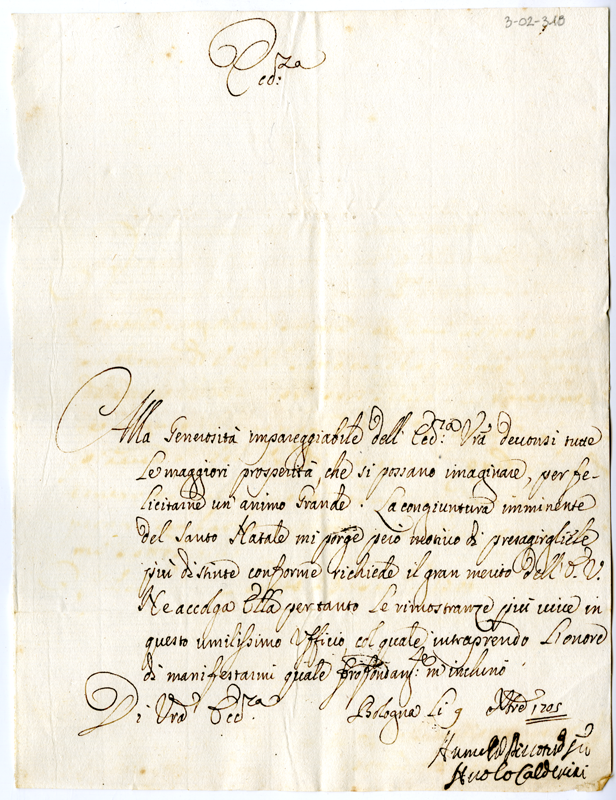 3-02-318
Ecc:za
Alla Generosità impareggiabile dell' Ecc:za Vrã deuonsi tutte
le maggiori prosperità, che si possano imaginare, per fe-
licitarne un' animo Grande. La congiuntura imminente
del Santo Natale mi porge però motiuo di presagirgliele
più distinte conforme richiede il gran merito dell' E. V.
Ne accolga Ella per tanto le rimostranze più uiue in
questo umilissimo Ufficio, col quale intraprendo l'ionore
di manifestarmi quale profondam:te m' inchino
Di Vrã Ecc:za Bologna li 9 Xbre 1705
Calderini